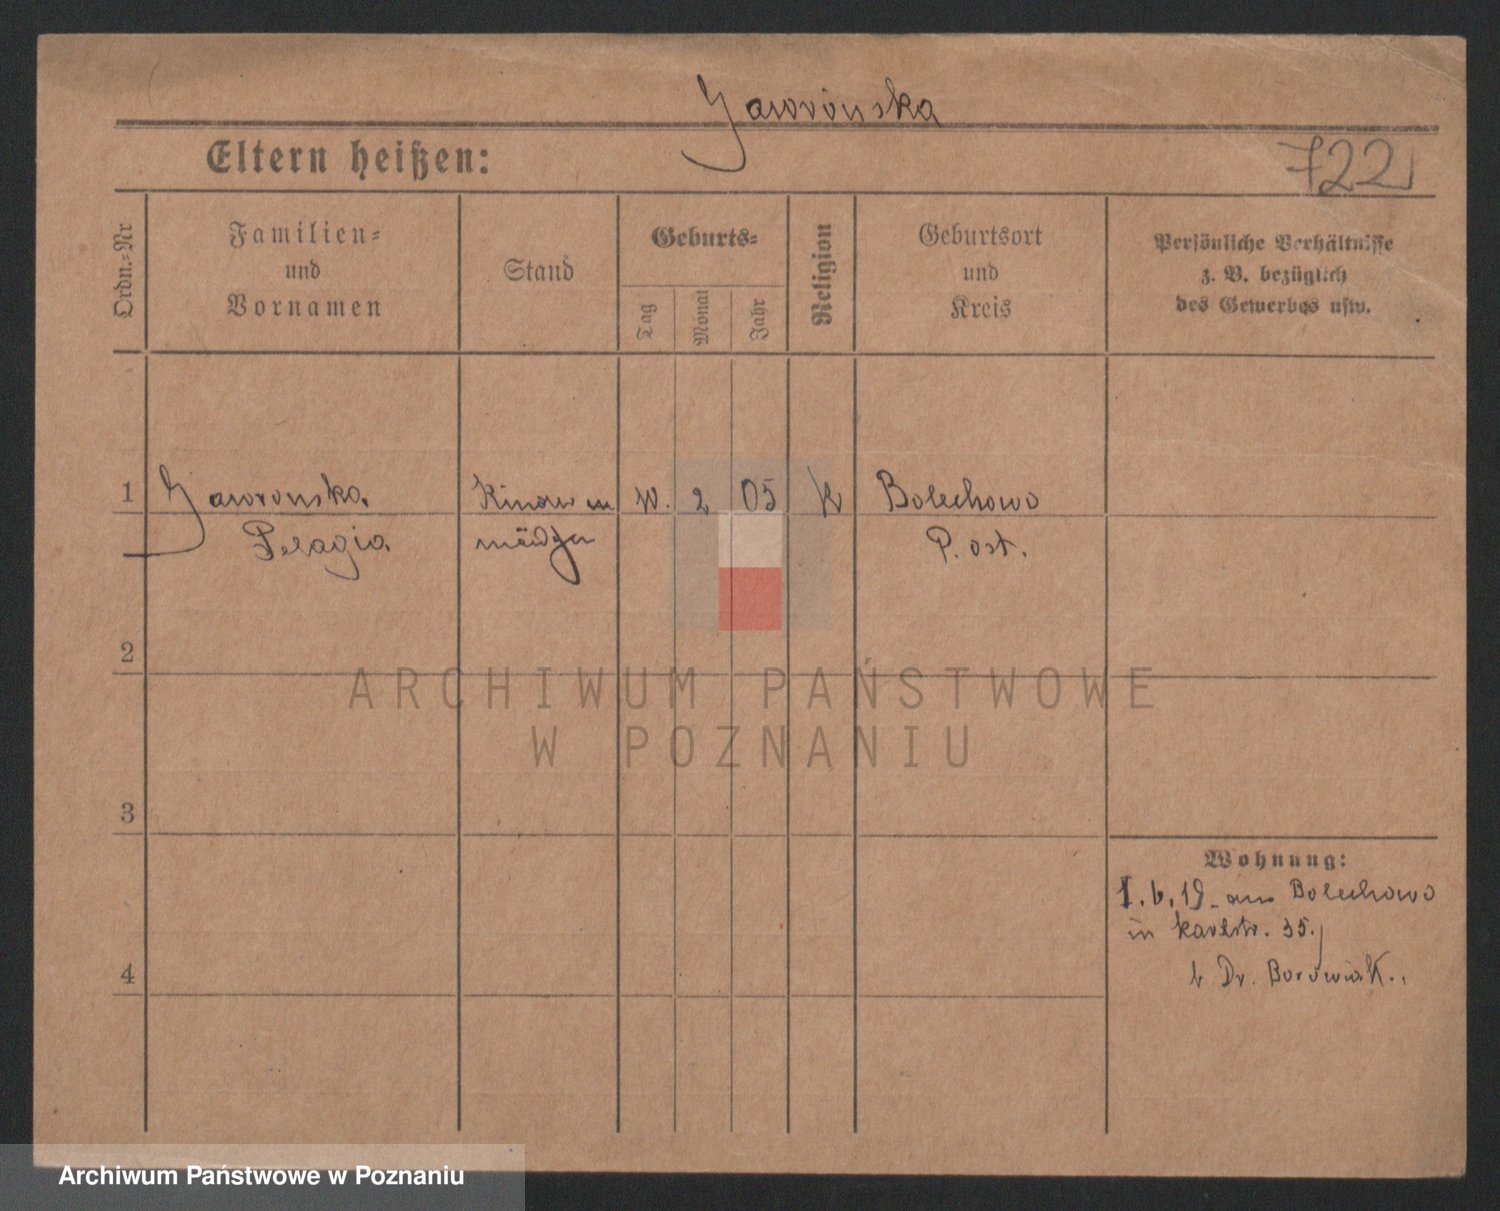 Jaworónska
Eltern heißen:
722
Ordn.-Nr
Familien-
und
Vornamen
Stand
Geburts-
Tag
Monat
Jahr
Religion
Geburtsort
und
Kreis
Persönliche Verhältnisse
z. B. bezüglich
des Gewerbes usw.
1 Jaworonska 2 05 K Bolechowo
Pelagia mädchen P. ost.
2
3
4
Wohnung:
1.6.19 aus Bolechowo
in Karlstr. 35.
b Dr. Borowiak.
ARCHIWUM PAŃSTWOWE
W POZNANIU
Archiwum Państwowe w Poznaniu